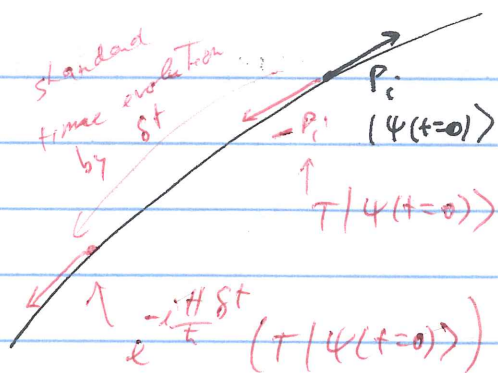 standard
time evolution ...
by δt
P_i
|ψ(t=0)⟩
-P_i
↑
T|ψ(t=0)⟩
e^{-i\frac{H}{ħ}δt} (T|ψ(t=0)⟩)